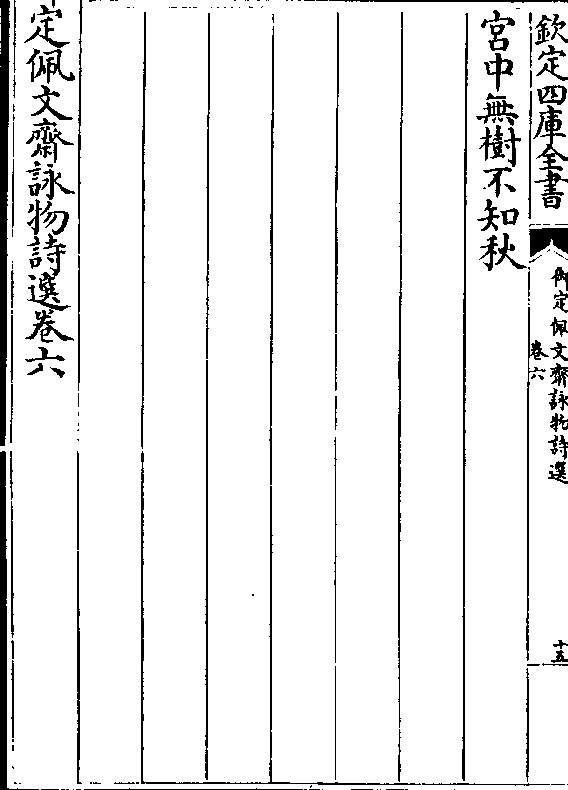 欽定四庫全書
御定佩文齋詠物詩選
卷六
十五
宮中無樹不知秋
定佩文齋詠物詩選卷六